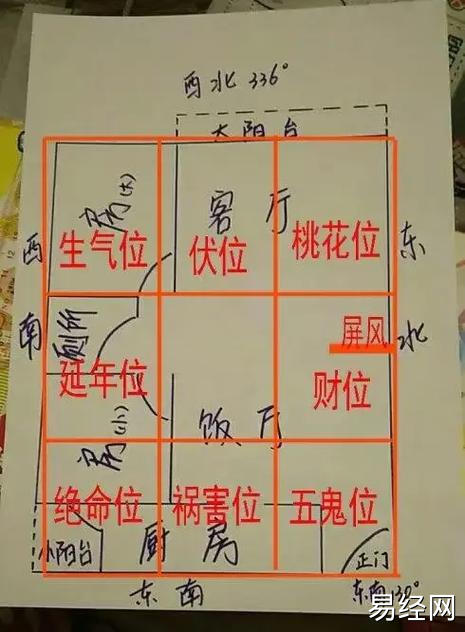 西北 336°
大阳台
房(大)
客厅
生气位
伏位
桃花位
西南
东北
厕所
屏风
延年位
财位
房(小)
饭厅
绝命位
祸害位
五鬼位
小阳台
厨房
正门
东南
东南130°
易经网